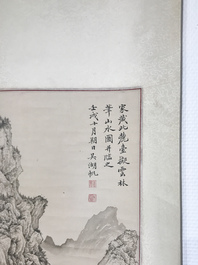 家藏北苑臺擬雲林
筆山水圖并臨之
壬戌十月朔日吳湖帆